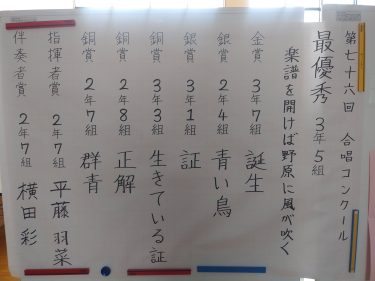 第七十六回 合唱コンクール
最優秀 3年5組
楽譜を開けば野原に風が吹く
金賞 3年7組 誕生
銀賞 2年4組 青い鳥
銀賞 3年1組 証
銅賞 3年3組 生きている証
銅賞 2年8組 正解
銅賞 2年7組 群青
指揮者賞 2年7組 平藤 羽菜
伴奏者賞 2年7組 横田 彩